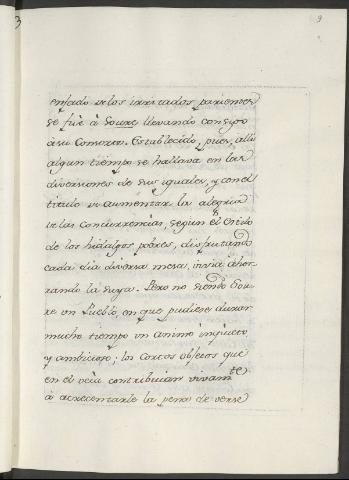 3
9
enfado de los irritados parientes
se fué à Soure llevando consigo
à su Consorte. Establecido, pues, alli
algun tiempo se hallava en las
diversiones de sus iguales, y con el
titulo de aumentar la alegria
de las Concurrencias, segun el estilo
de los hidalgos pobres, disfrutando
cada dia diversa mesa, iva ahor-
rando la suya. Pero no siendo Sou-
re un Pueblo, en que pudiese durar
mucho tiempo un animo inquieto
y ambicioso; los cortos objetos que
en el veia contribuian vivamte
à acrecentarle la pena de verse